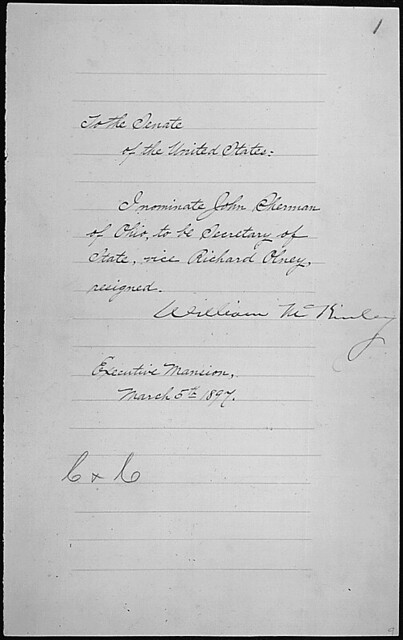 1
To the Senate
of the United States:
I nominate John Sherman
of Ohio, to be Secretary of
State, vice Richard Olney,
resigned.
William McKinley
Executive Mansion,
March 5th 1897.
C & C